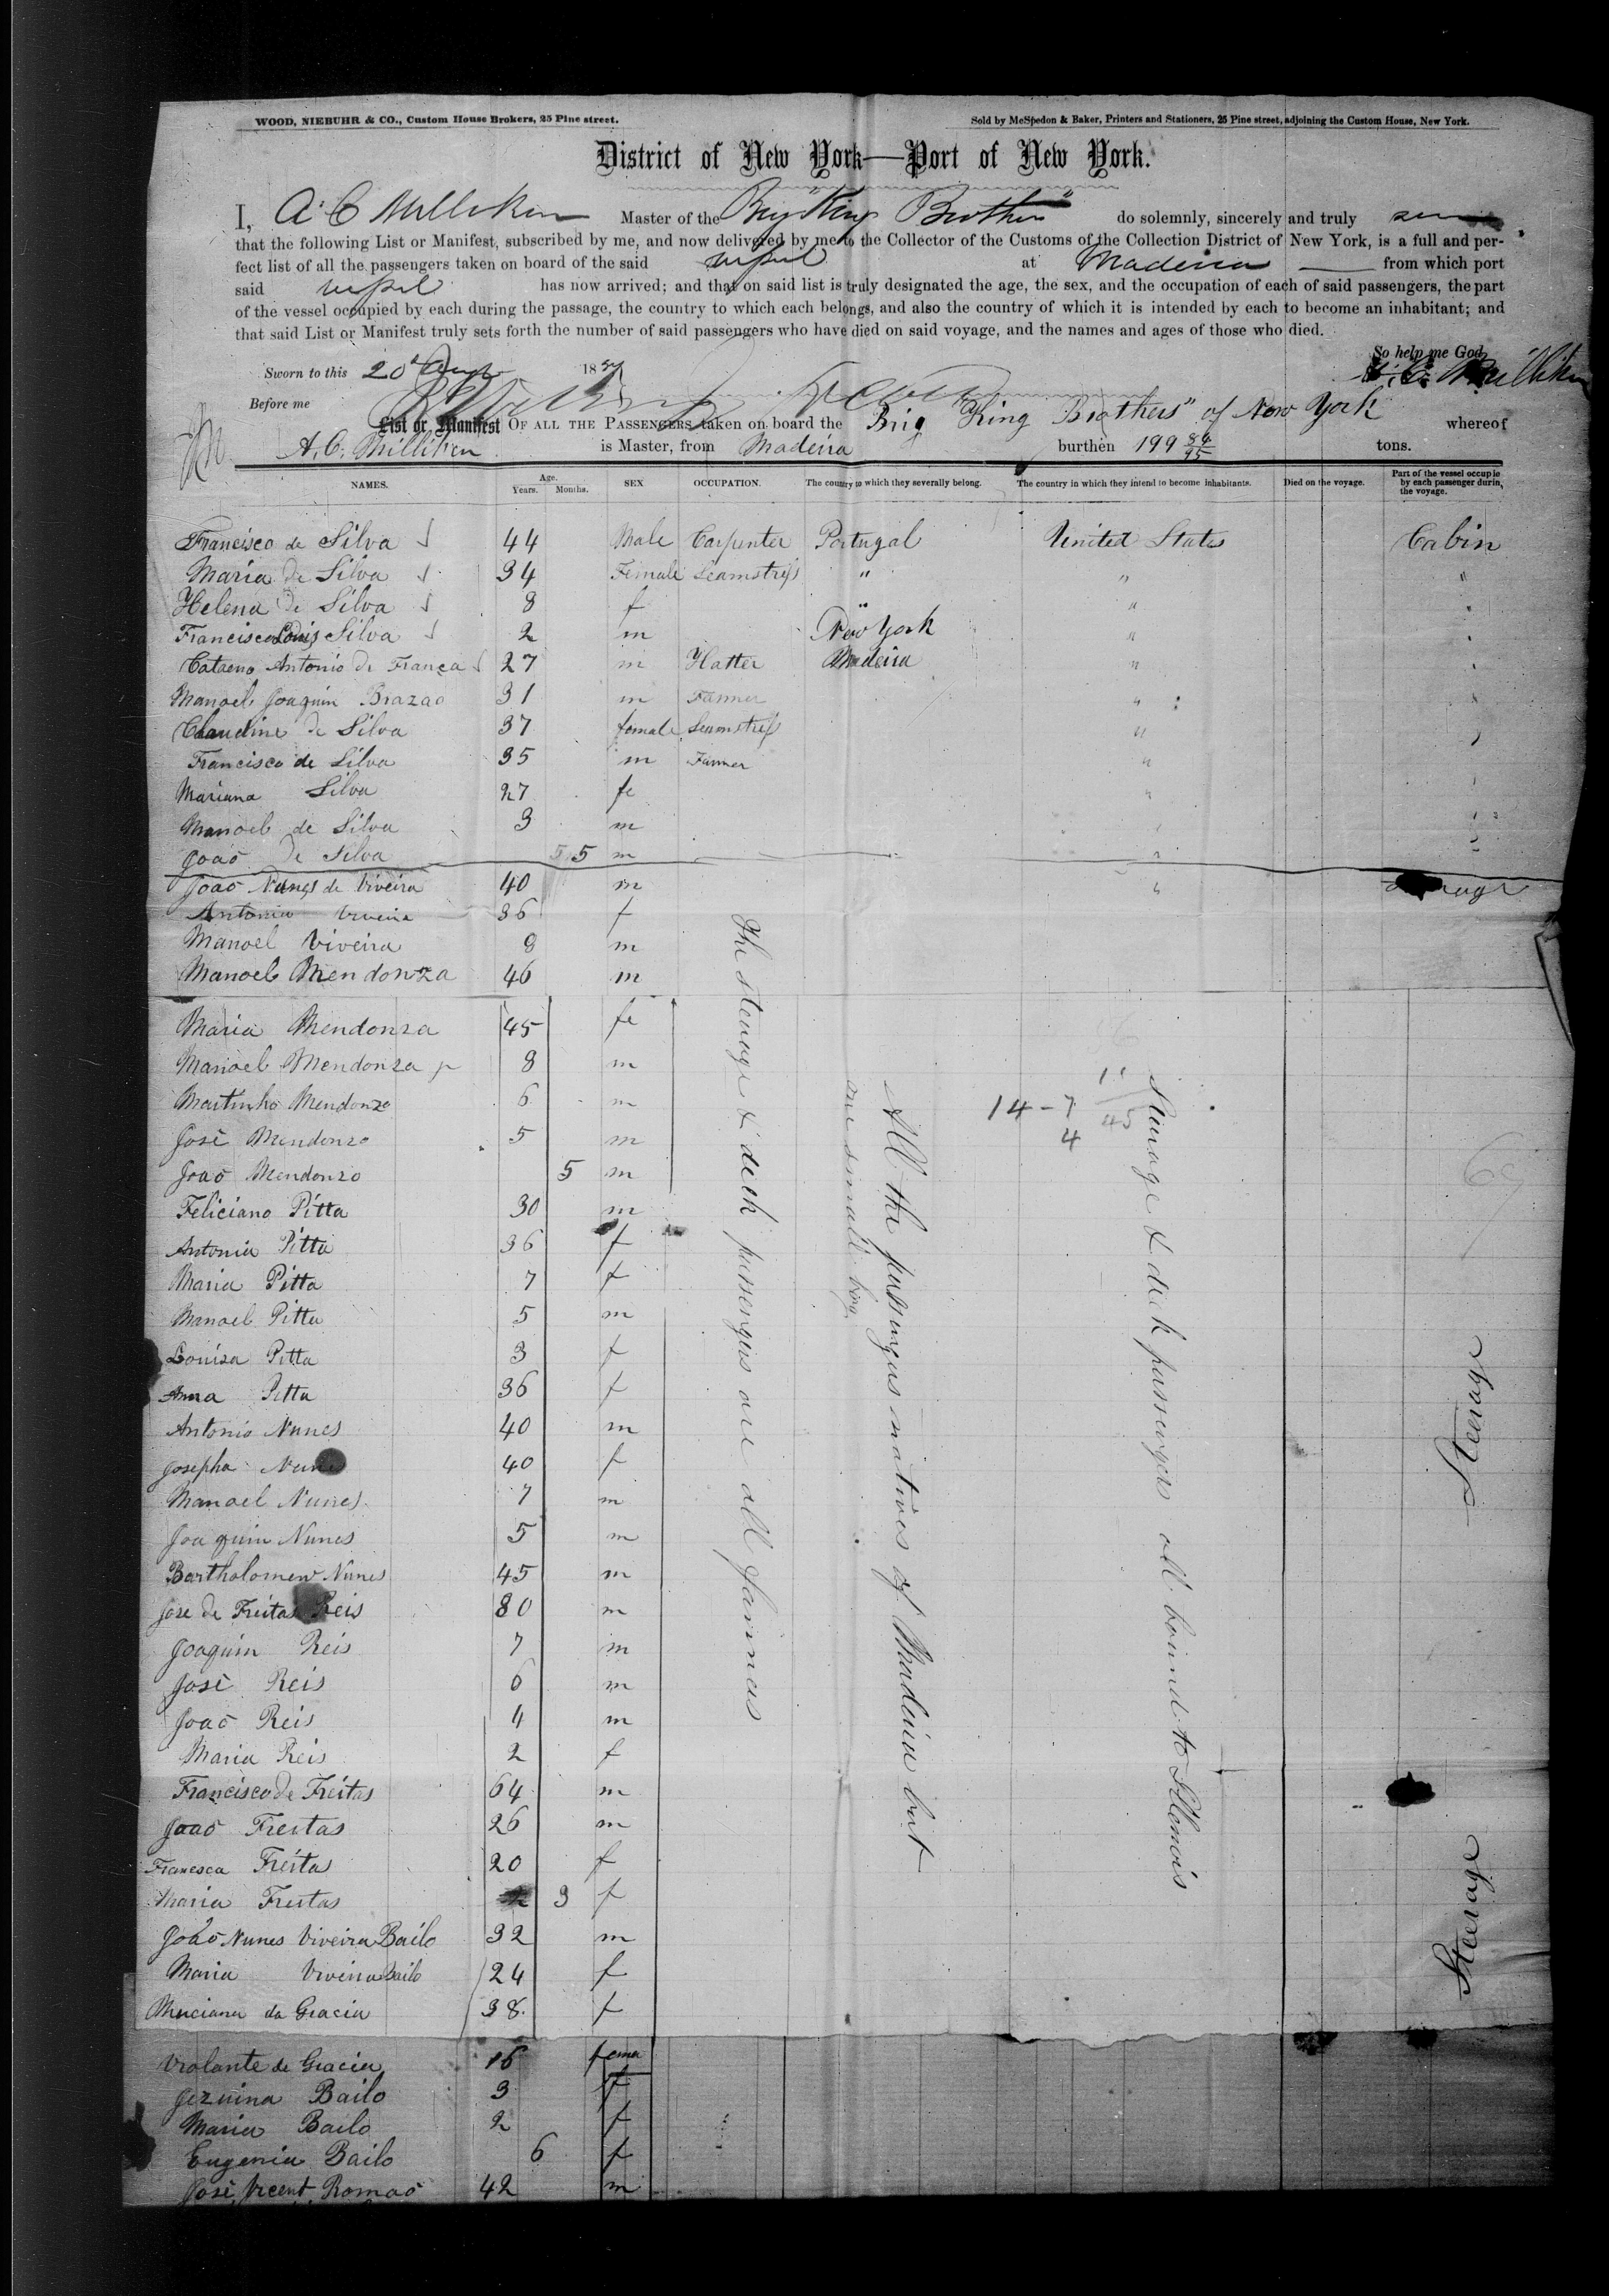 WOOD, NIEBUHR & CO., Custom House Brokers, 25 Pine street.
Sold by McSpedon & Baker, Printers and Stationers, 25 Pine street, adjoining the Custom House, New York.
District of New York—Port of New York.
I, A. C. Milliken Master of the Brig "King Brothers" do solemnly, sincerely and truly
that the following List or Manifest, subscribed by me, and now delivered by me to the Collector of the Customs of the Collection District of New York, is a full and per-
fect list of all the passengers taken on board of the said vessel at Madeira from which port
said vessel has now arrived; and that on said list is truly designated the age, the sex, and the occupation of each of said passengers, the part
of the vessel occupied by each during the passage, the country to which each belongs, and also the country of which it is intended by each to become an inhabitant; and
that said List or Manifest truly sets forth the number of said passengers who have died on said voyage, and the names and ages of those who died.
So help me God
Sworn to this 20 Augt 18 A. C. Milliken
Before me
List or Manifest OF ALL THE PASSENGERS taken on board the Brig "King Brothers" of New York whereof
A. C. Milliken is Master, from Madeira burthen 199 84/95 tons.
NAMES. Age. Years. Months. SEX OCCUPATION. The country to which they severally belong. The country in which they intend to become inhabitants. Died on the voyage. Part of the vessel occupie by each passenger durin, the voyage.
Francisco de Silva 44 Male Carpenter Portugal United States Cabin
Maria de Silva 34 Female Seamstress " " "
Helena de Silva 8 f " " "
Francisco Louis Silva 2 m New York " "
Cataeno Antonio de França 27 m Hatter Madeira " "
Manoel Joaquim Brazao 31 m Farmer "
Claudine de Silva 37 female Seamstress "
Francisco de Silva 35 m Farmer "
Mariana Silva 27 fe "
Manoel de Silva 3 m "
Joaõ de Silva 5 5 m "
Joao Nunes de Viveira 40 m "
Antonia Viveira 36 f
Manoel Viveira 8 m
Manoel Mendonza 46 m
Maria Mendonza 45 fe
Manoel Mendonza jr 8 m
Martinho Mendonza 6 m
José Mendonza 5 m
Joaõ Mendonzo 5 m
Feliciano Pitta 30 m
Antonia Pitta 36 f
Maria Pitta 7 f
Manoel Pitta 5 m
Louisa Pitta 3 f
Anna Pitta 36 f
Antonio Nunes 40 m
Josepha Nunes 40 f
Manoel Nunes 7 m
Joaquim Nunes 5 m
Bartholomew Nunes 45 m
Jose de Freitas Reis 80 m
Joaquim Reis 7 m
José Reis 6 m
Joaõ Reis 4 m
Maria Reis 2 f
Francisco de Freitas 64 m
Joaõ Freitas 26 m
Francsca Freitas 20 f
Maria Freitas 3 f
Joaõ Nunes Viveira Bailo 32 m
Maria Viveira Bailo 24 f
Muciana da Gracia 38 f
Violante de Gracia 16 fema
Jezuina Bailo 3 f
Maria Bailo 2 f
Eugenia Bailo 6 f
José Vicent Romaõ 42 m
The steerage & deck passengers are all farmers
All the passengers natives of Madeira but
one small boy.
14-7
4
45
Steerage & deck passengers all bound to Illinois
69
Steerage
Steerage